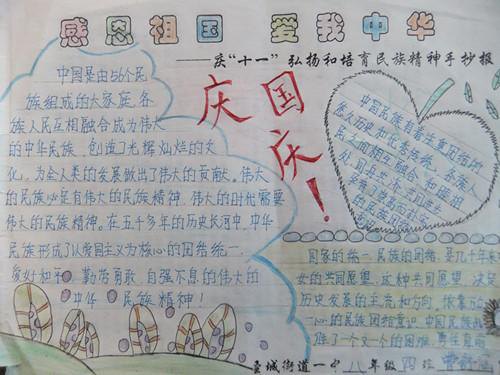 感恩祖国 爱我中华
——庆“十一”弘扬和培育民族精神手抄报
中国是由56个民
族组成的大家庭,各
族人民互相融合成为伟大
的中华民族,创造了光辉灿烂的文
化,为全人类的发展做出了伟大的贡献。伟大
的民族必定有伟大的民族精神,伟大的时代需要
伟大的民族精神。在五千多年的历史长河中,中华
民族形成了以爱国主义为核心的团结统一、
爱好和平、勤劳勇敢、自强不息的伟大的
中华民族精神!
庆国庆!
中国民族有着注重团结的
悠久历史和优秀传统,各族人
民之间相互融合,和睦相
处,同甘共
国家的统一,民族的团结,是几千年来
女的共同愿望,这种共同愿望,决定
历史发展的主流和方向,依靠
心的民族团结意识,中国民族
胜了一个又一个的困难,
圣城街道一中 八年级 四班